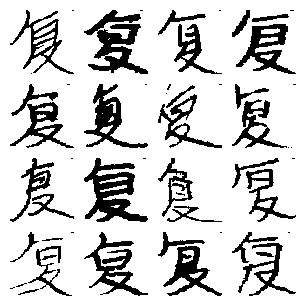 复复复复
复复复复
复复复复
复复复复